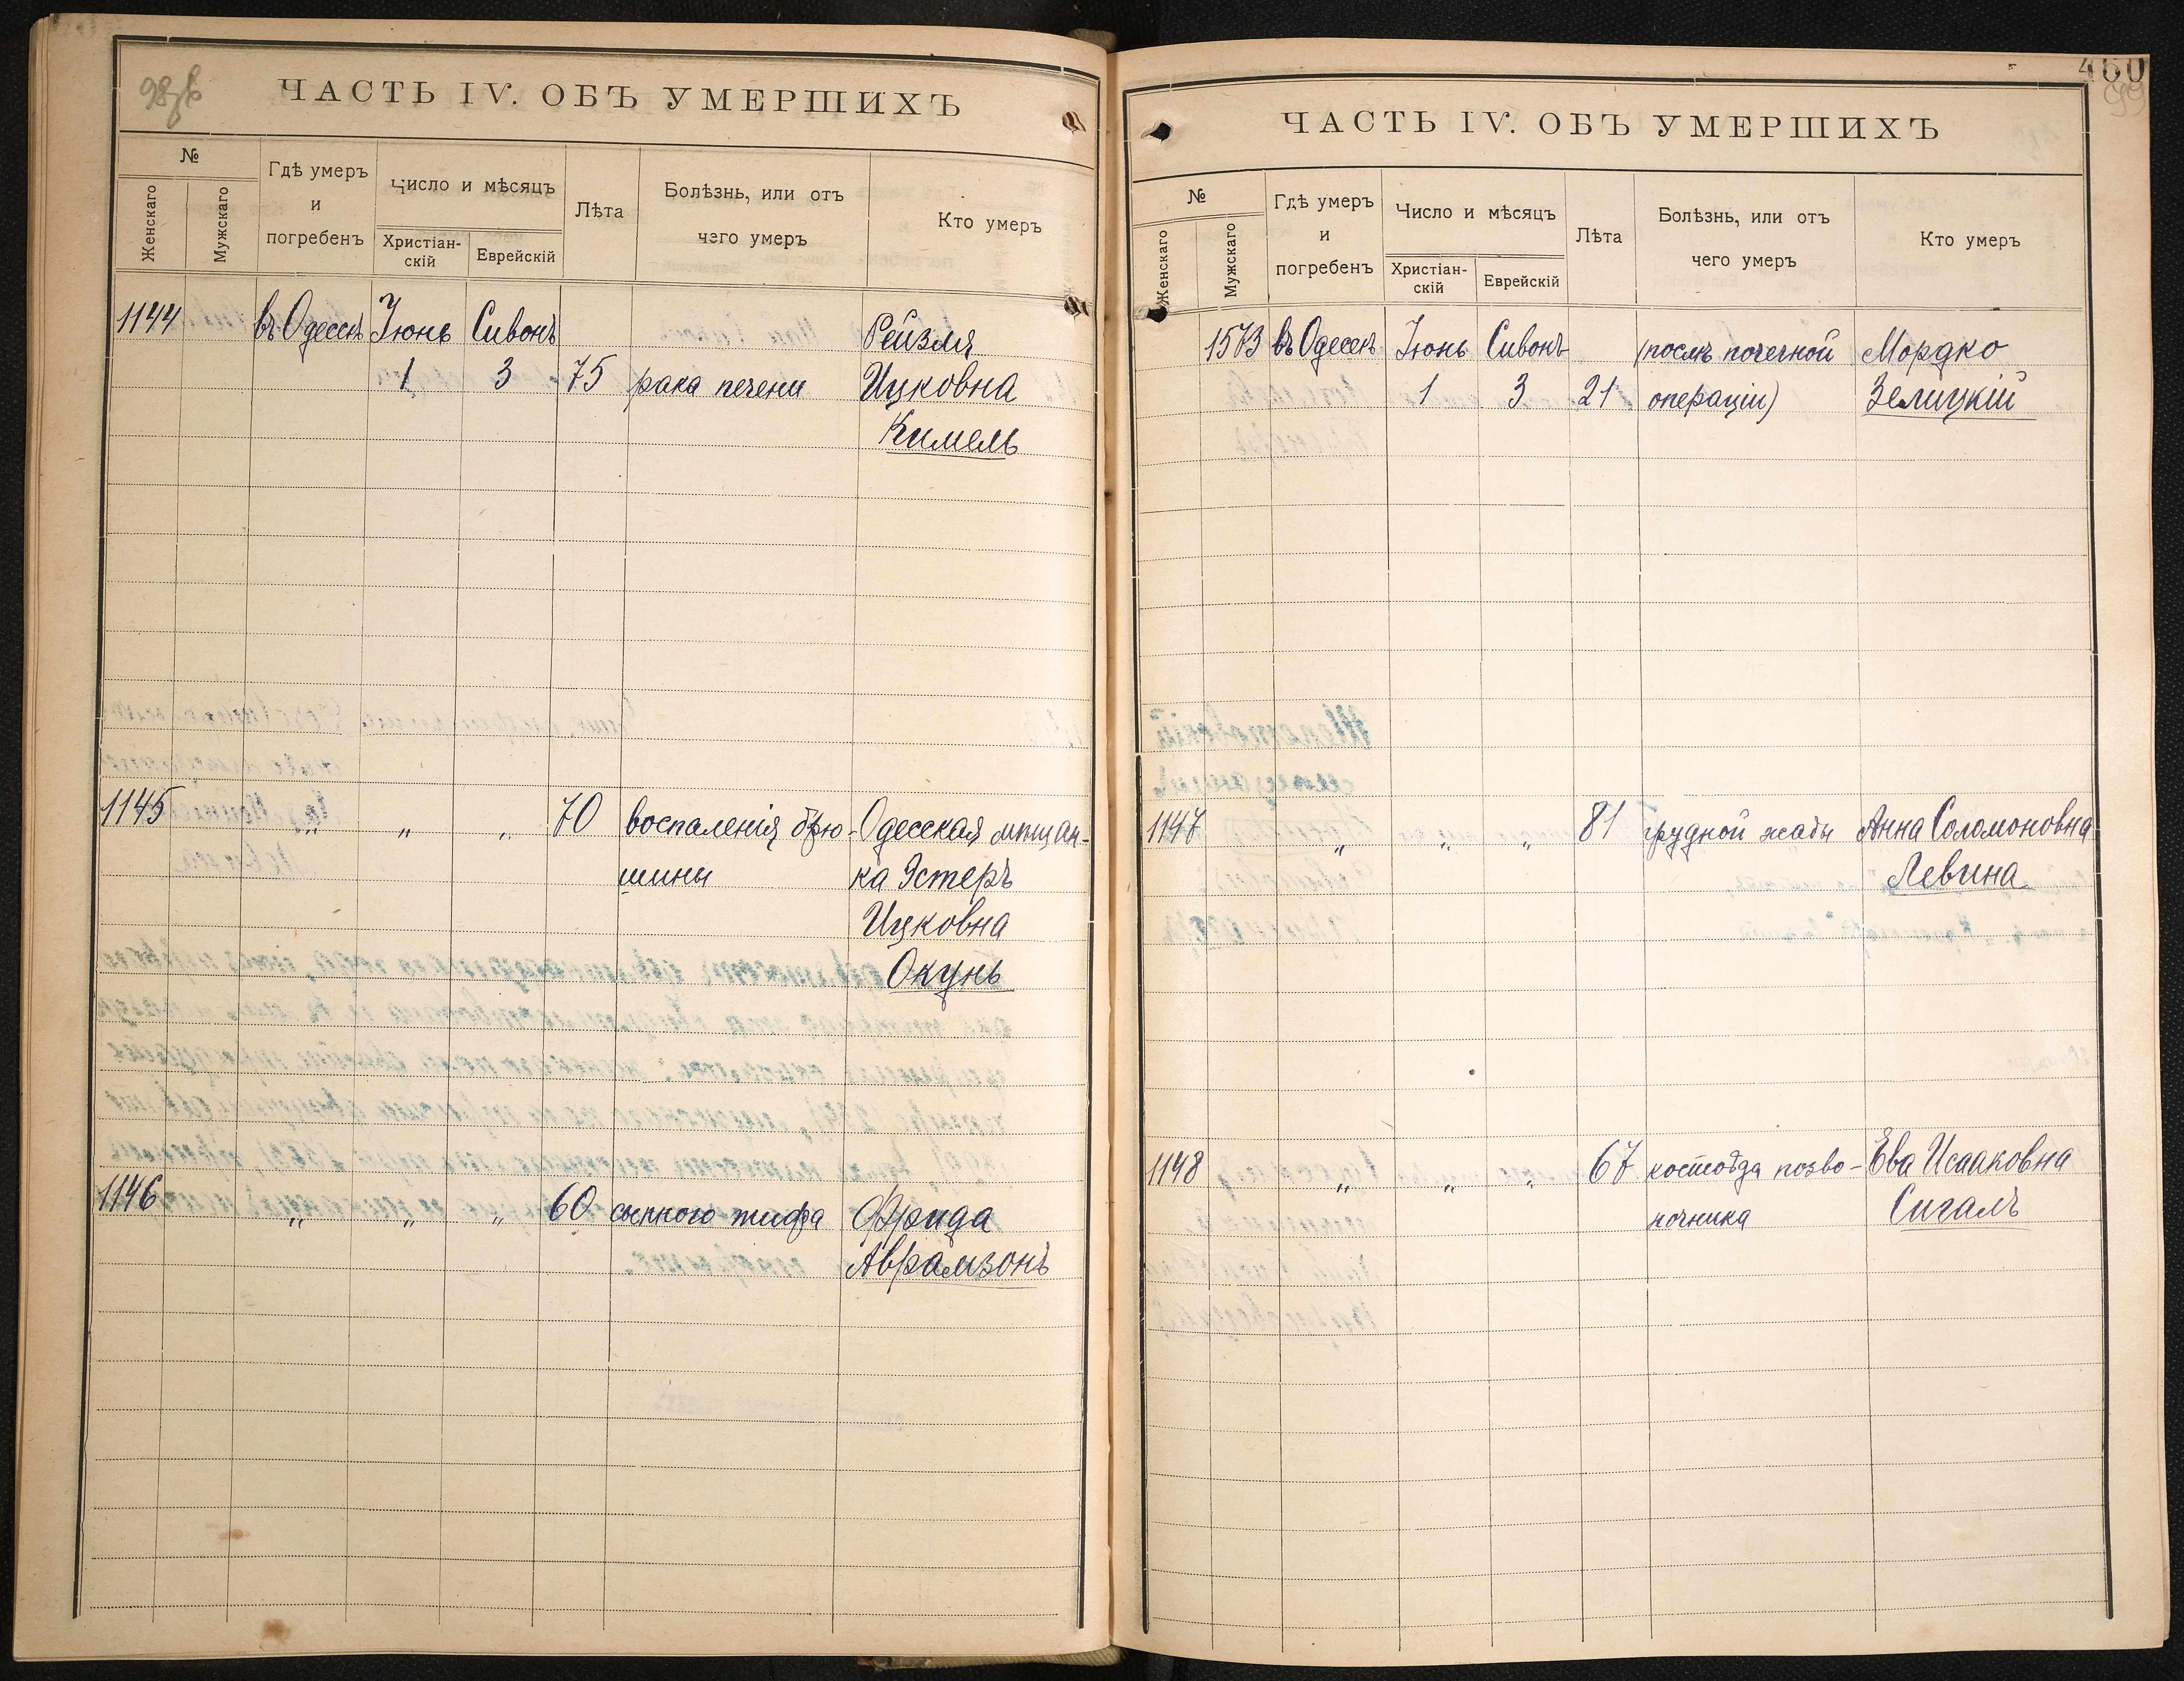 98об
ЧАСТЬ IV. ОБЪ УМЕРШИХЪ
№
Женскаго
Мужскаго
Гдѣ умеръ
и
погребенъ
Число и мѣсяцъ
Христіан-
скій
Еврейскій
Лѣта
Болѣзнь, или отъ
чего умеръ
Кто умеръ
1144 въ Одессѣ Іюнь Сивонъ Рейзля
1 3 75 рака печени Ицковна
Кимель
1145 „ „ „ 70 воспаленія брю- Одесская мѣщан-
шины ка Эстеръ
Ицковна
Окунь
1146 „ „ „ 60 сыпного тифа Фрида
Аврамзонъ
460
99
ЧАСТЬ IV. ОБЪ УМЕРШИХЪ
№
Женскаго
Мужскаго
Гдѣ умеръ
и
погребенъ
Число и мѣсяцъ
Христіан-
скій
Еврейскій
Лѣта
Болѣзнь, или отъ
чего умеръ
Кто умеръ
1573 въ Одессѣ Іюнь Сивонъ (послѣ почечной Мордко
1 3 21 операціи) Зелицкій
1147 „ „ „ 81 грудной жабы Анна Соломоновна
Левина
1148 „ „ „ 67 костоѣда позво- Ева Исааковна
ночника Сигалъ